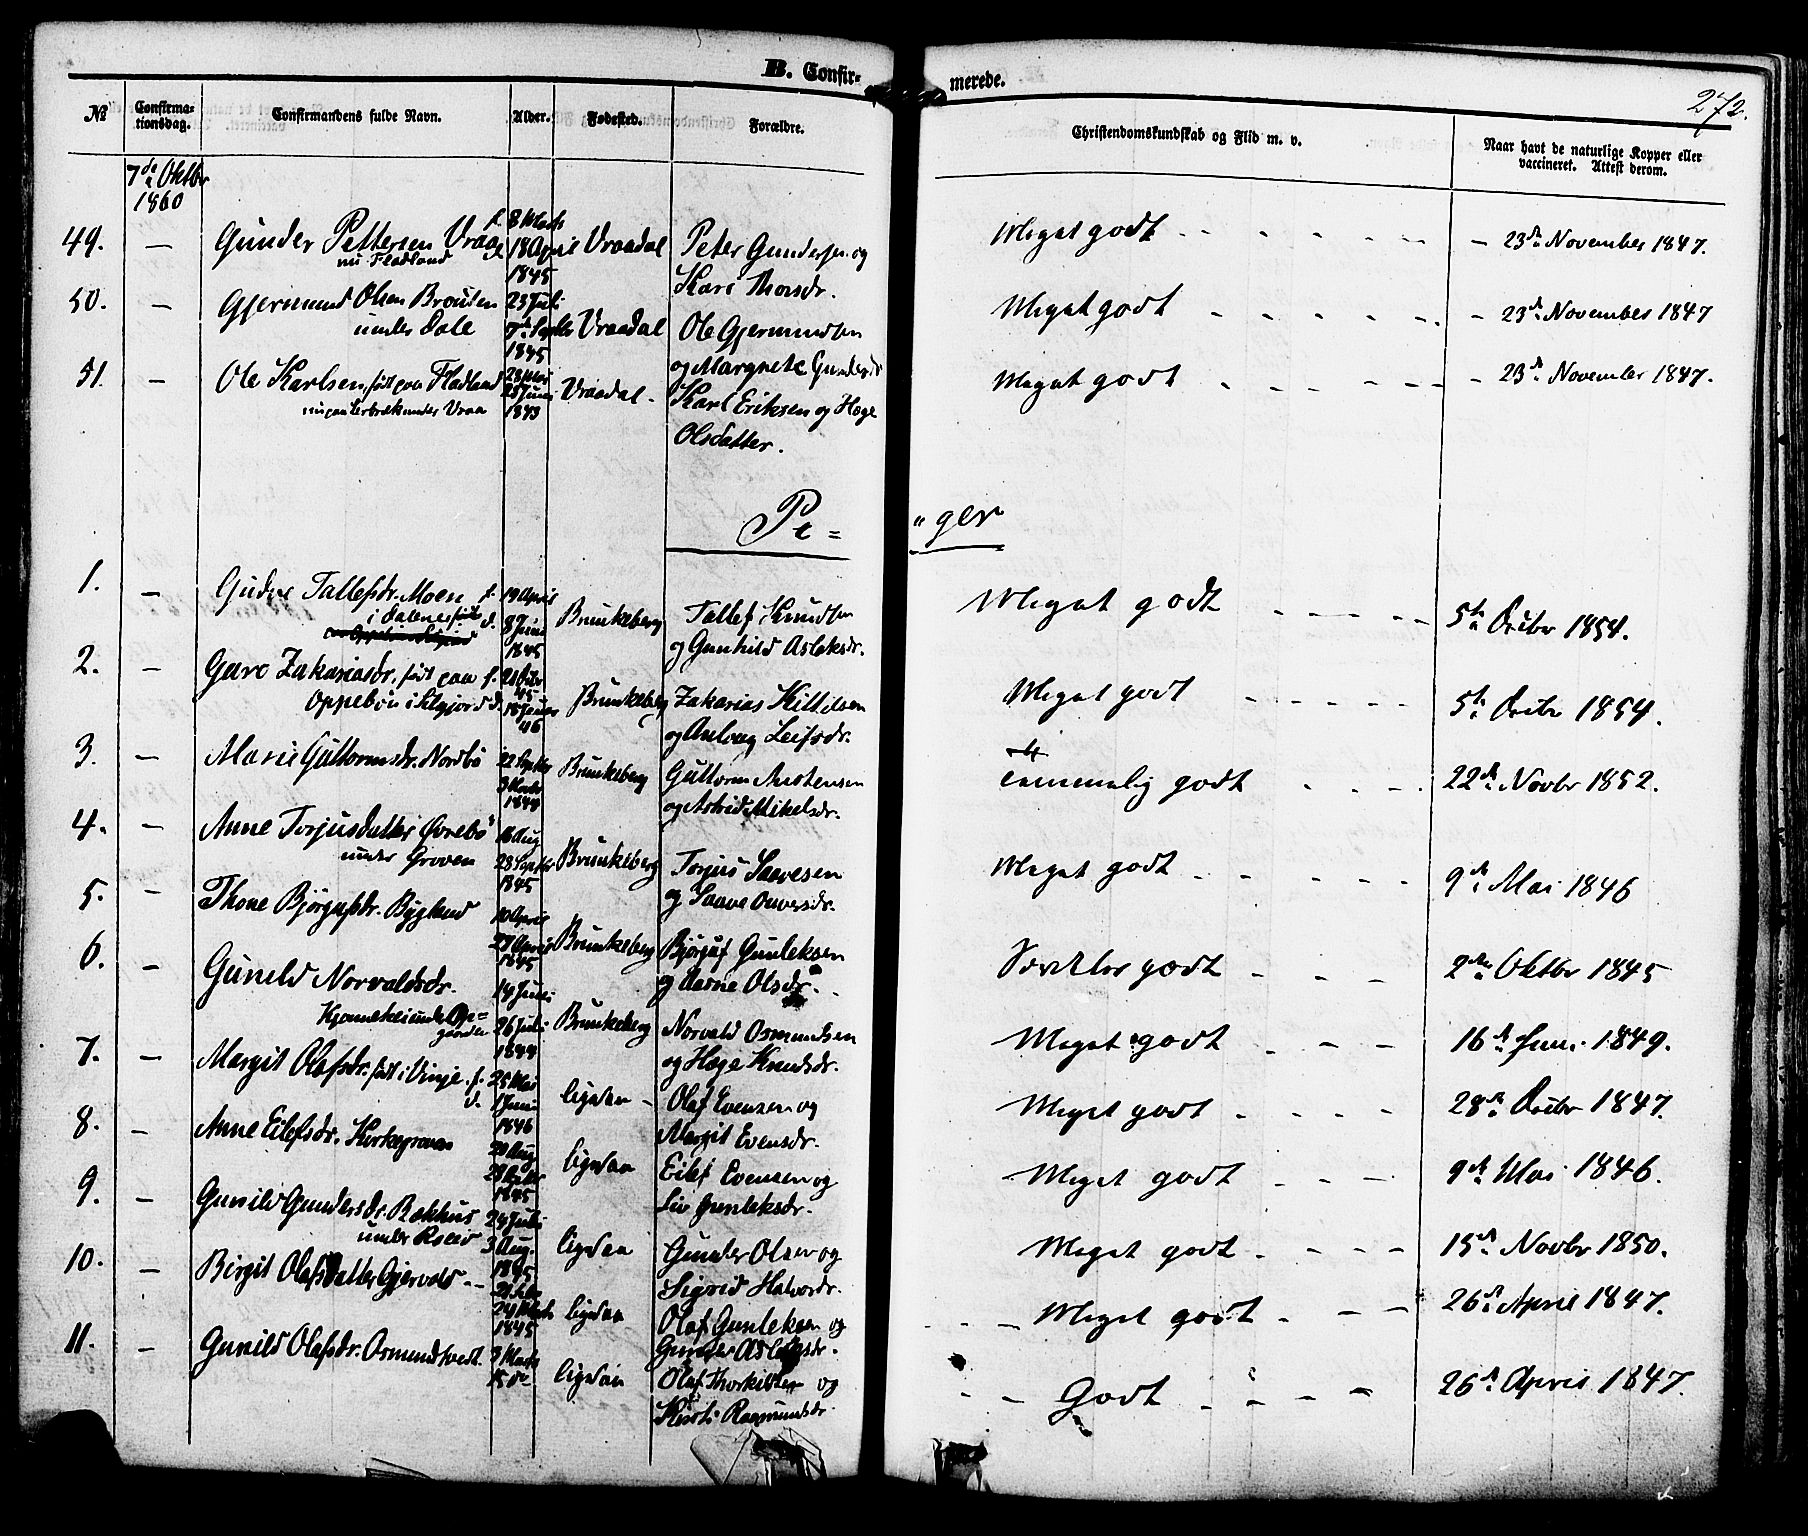 B. Confir=
merede.
272.
№
Confirma-
tionsdag.
Confirmandens fulde Navn.
Alder.
Fødested.
Forældre.
Christendomskundskab og Flid m. v.
Naar havt de naturlige Kopper eller
vaccineret. Attest derom.
7de Oktbr
1860
49. — Gunder Pettersen Vraa f. 8 Marts Vraadal Peter Gundersen og Meget godt - - - - - 23de November 1847.
nu Fladland d. 18 April
1845 Kari Thorsdr.
50. — Gjermund Olsen Brouten 23 Juli Vraadal Ole Gjermundsen Meget godt - - - - - 23de November 1847
under Dale 7de Septbr
1845 og Margrete Gundersdr
51. — Ole Karlsen, født paa Fladland 23 Mai Vraadal. Karl Eriksen og Hæge Meget godt - - - - - 23de November 1847.
nu paa under Vraa 25 Juni
1843 Olsdatter.
Pi=
"ger
1. — Tallefsdr. Moen f. 19 April Brunkeberg Tallef Knudsen Meget godt - - - - 5te Decbr 1854.
i Dalene født d. 8 Juni
1845 og Gunhild Aslaksdr.
2. — Zakariasdr. født paa f. Brunkeberg Zakarias Kittilsen Meget godt - - - - 5te Decbr 1854.
Oppebøn i Silgjord d.
46 og Leifsdr.
3. — Marie Guttormsdr. Nordbø 22 Septbr Brunkeberg Guttorm Austensen Temmelig godt - - - 22de Novbr 1852.
1844 og Astrid Mikelsdr.
4. — Anne Torjusdatter Øvrebø 16 Aug Brunkeberg Torjus Saavesen Meget godt - - - - 9de Mai 1846
under Groven 28 Septbr
1845 og Saave
5. — Thone Bjørgufsdr. Bygland 10 April Brunkeberg Bjørguf Gunleksen Særdeles godt - - - 2den Oktbr 1845
1845 og Olsdr.
6. — Gunild Norvaldsdr. 14 Juli Brunkeberg Norvald Osmundsen Meget godt - - - 16de Juni 1849.
under 26 Juli
1844 og Hæge Knudsdr.
7. — Margit Olafsdr. født i Vinje. f. 25 Mai ligesaa Olaf Evensen og Meget godt - - - - 28de Decbr 1847.
d. 1 Juni
1846 Margit Evensdr.
8. — Anne Eilefsdr. 20 Aug ligesaa Eilef Evensen og Meget godt - - - 9de Mai 1846.
1845 Liv Gunleksdr.
9. — Gunild Gundersdr. Bakhus 24 Juli ligesaa Gunder Olsen og Meget godt - - - - 15de Novbr 1850.
under 3 Aug.
1845 Sigrid Halvorsdr.
10. — Birgit Olafsdatter ligesaa Olaf Gunleksen og Meget godt - - - 26de April 1847.
24 Marts
1845 Aslaksdr.
11. — Gunild Olafsdr. Osmundtvedt. 3 Marts ligesaa Olaf Thorkildsen og Godt - - - - 26de April 1847.
15 de